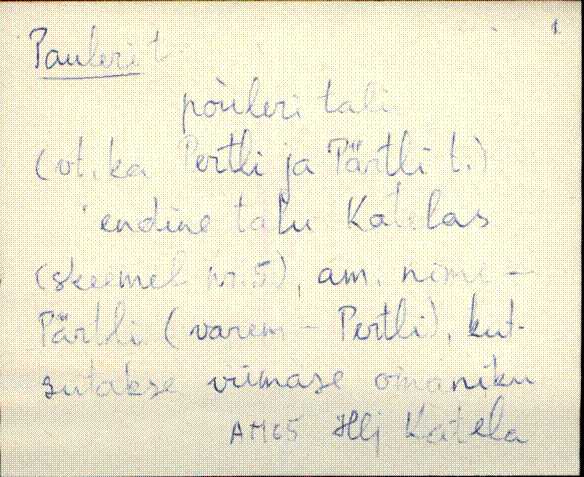 1
Pauleri t.
pòuleri talu
(vt. ka Pertli ja Pärtli t.)
endine talu Katelas
(skeemel nr. 5), am. nime -
Pärtli (varem - Pertli), kut-
sutakse viimase omaniku
AM65 Hlj Katela